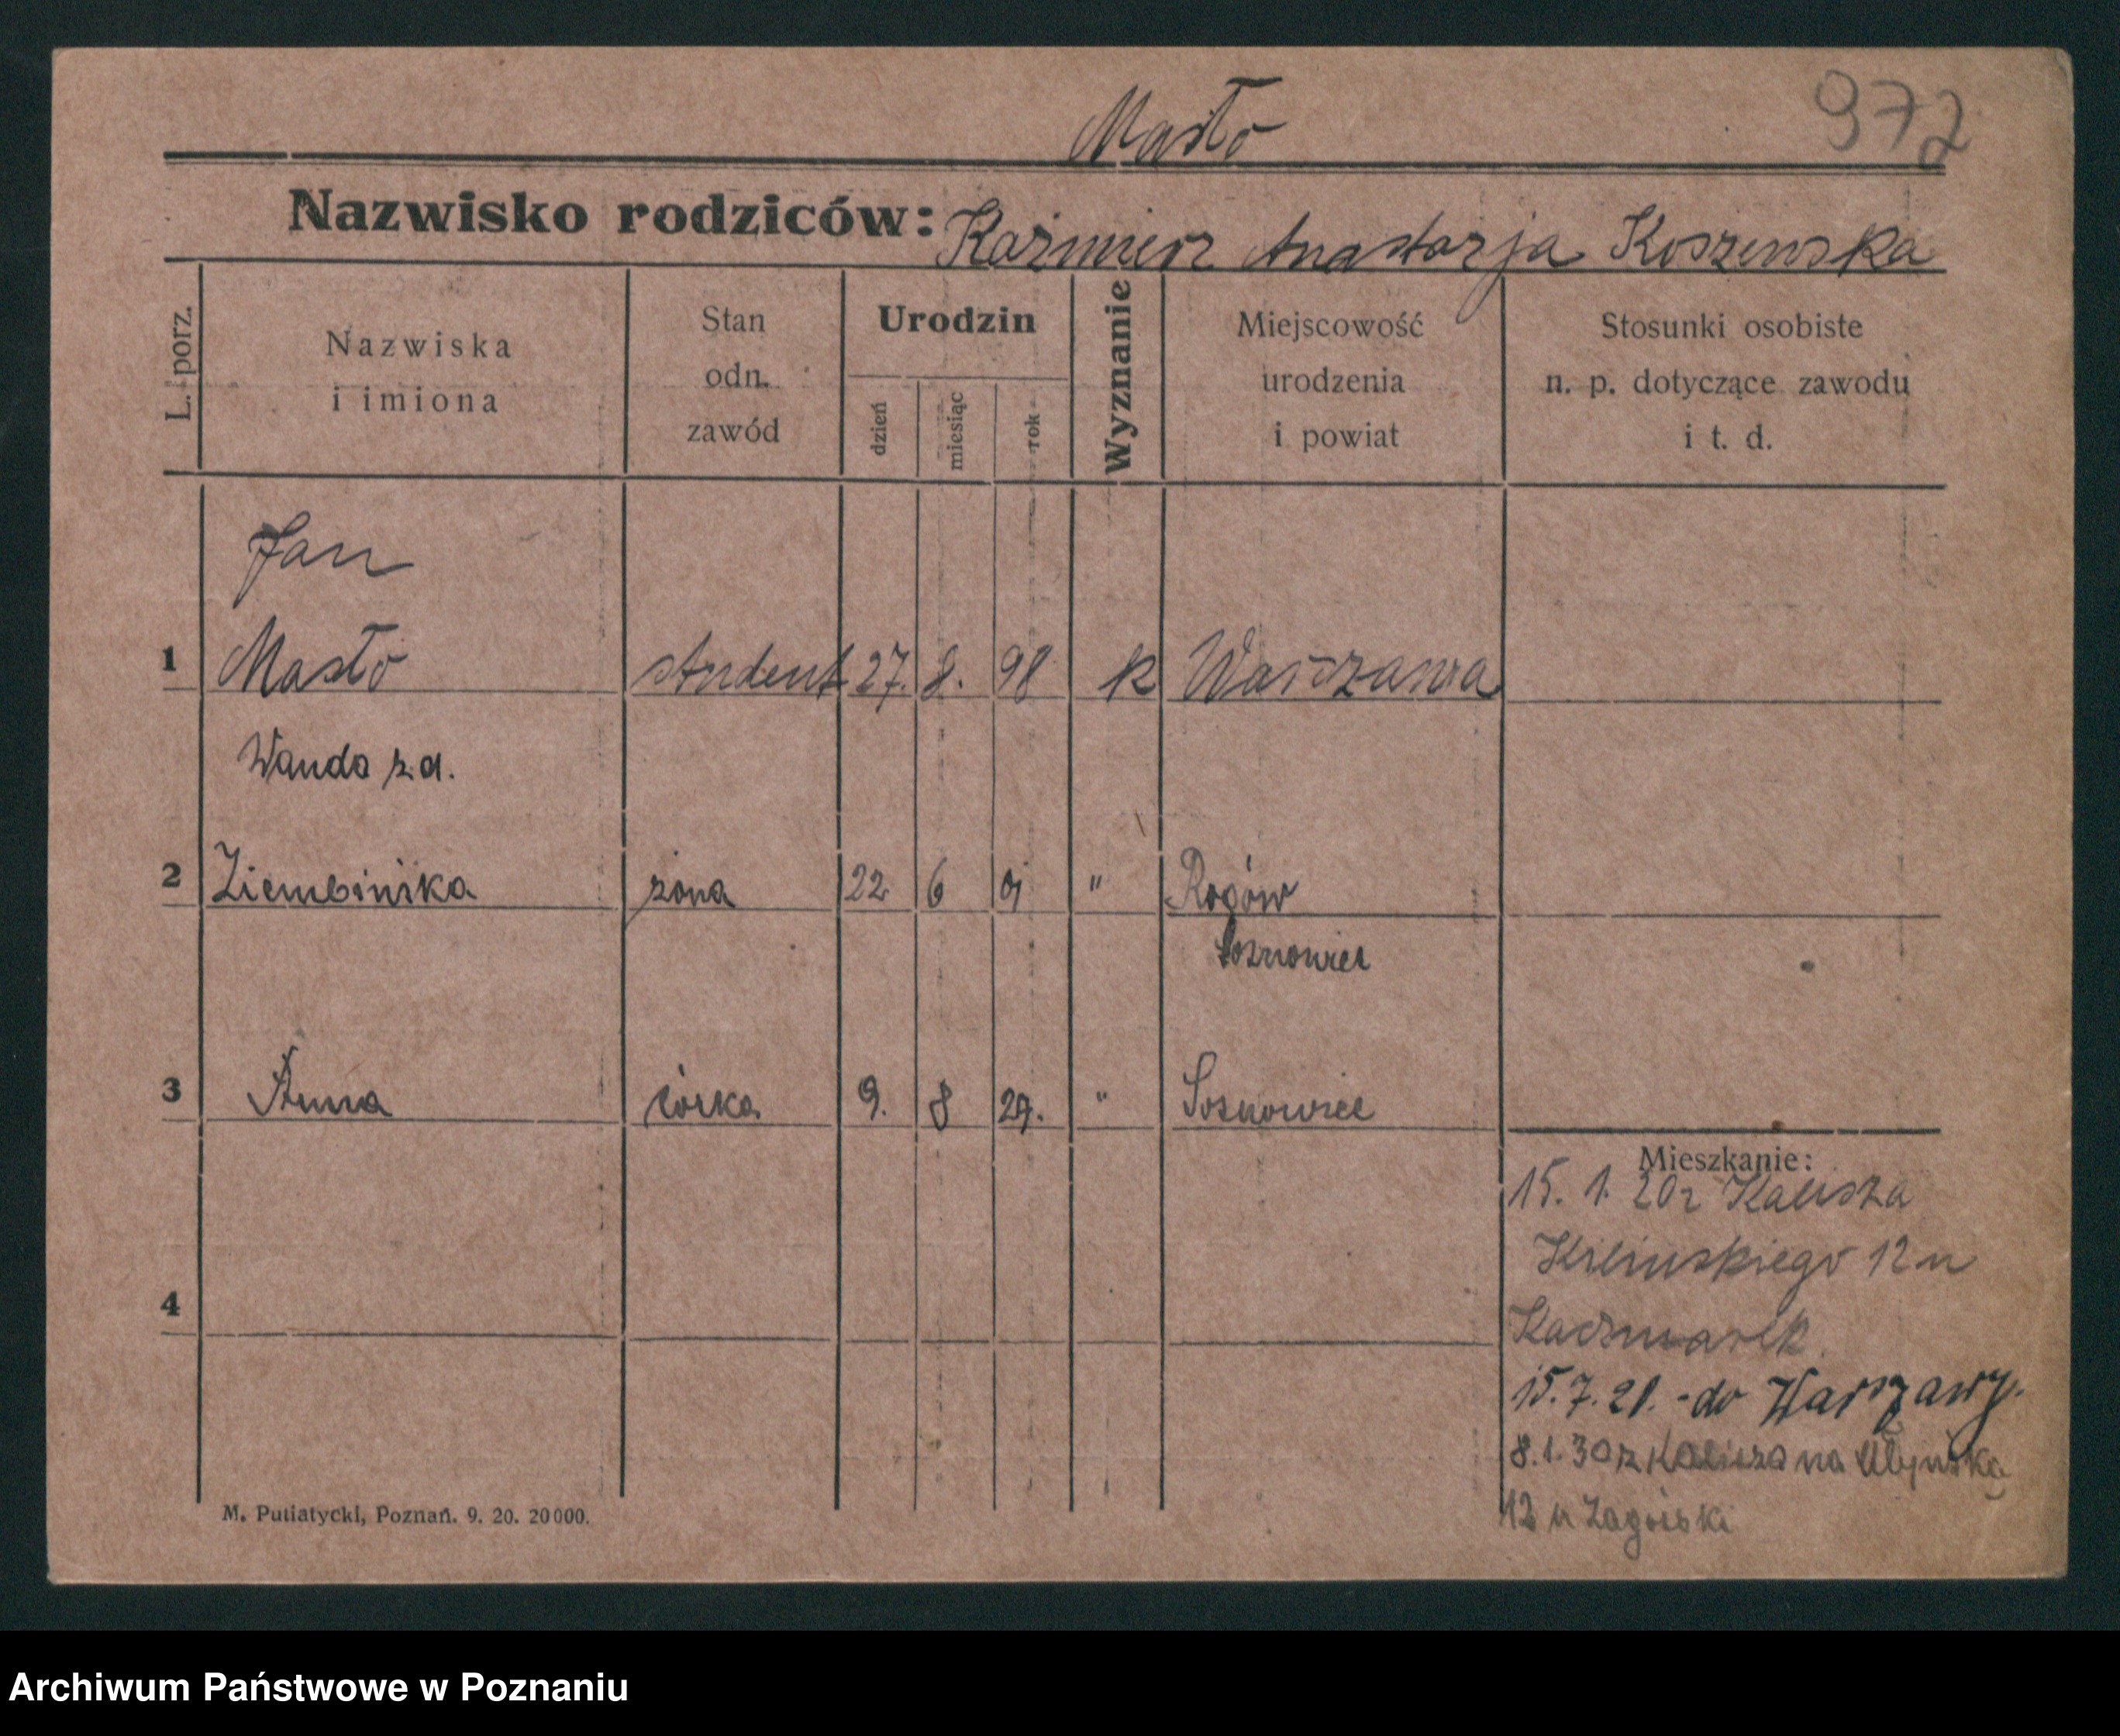 Masło
972
Nazwisko rodziców: Kaźmierz Anastazja Koszewska
L. porz.
Nazwiska
i imiona
Stan
odn.
zawód
Urodzin
dzień
miesiąc
rok
Wyznanie
Miejscowość
urodzenia
i powiat
Stosunki osobiste
n. p. dotyczące zawodu
i t. d.
Jan
1 Masło student 27. 8. 98 k Warszawa
Wanda z d.
2 Ziembińska żona 22 6 " Rogów
Sosnowiec
3 Anna córka 9. 8 29. " Sosnowiec
Mieszkanie:
15. 1. 20 z Kalisza
Kilińskiego 12 u
Kaczmarek
4
15. 7. 21. - do Warszawy.
8. 1. 30 z Kalisza na
12 u Zagórski
M. Putiatycki, Poznań. 9. 20. 20000.
Archiwum Państwowe w Poznaniu